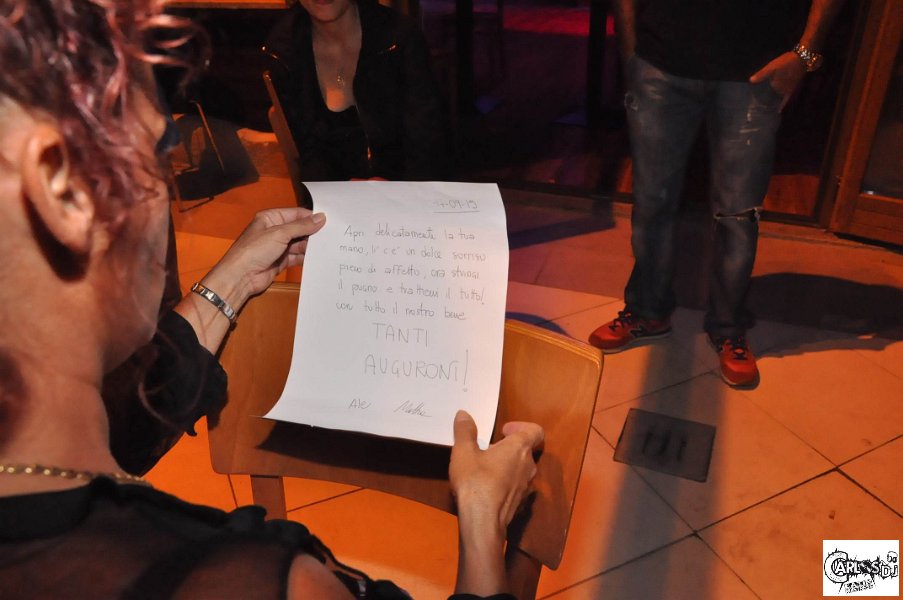 17-09-15
Apri delicatamente la tua
mano, li' c'è un dolce sorriso
pieno di affetto, ora stringi
il pugno e trattieni il tutto!
con tutto il nostro bene
TANTI
AUGURONI!
Ale
CARLOS DJ